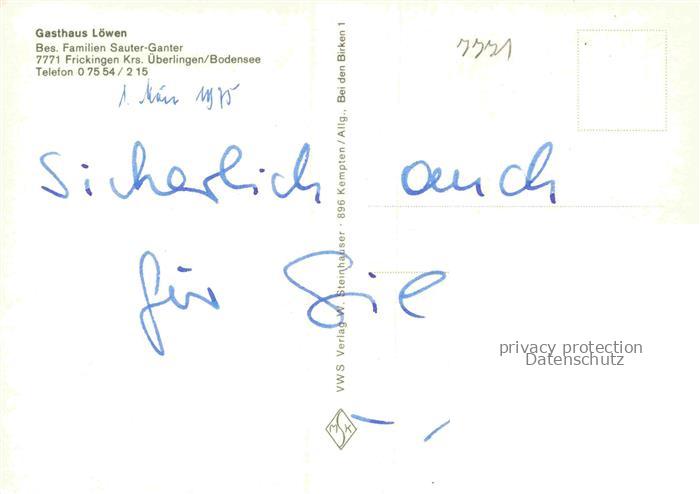 Gasthaus Löwen
Bes. Familien Sauter-Ganter
7771 Frickingen Krs. Überlingen/Bodensee
Telefon 0 75 54 / 2 15
1. März 1975
7771
sicherlich auch
für Sie
VWS Verlag W. Steinhauser · 896 Kempten/Allg., Bei den Birken 1
MSK
privacy protection
Datenschutz